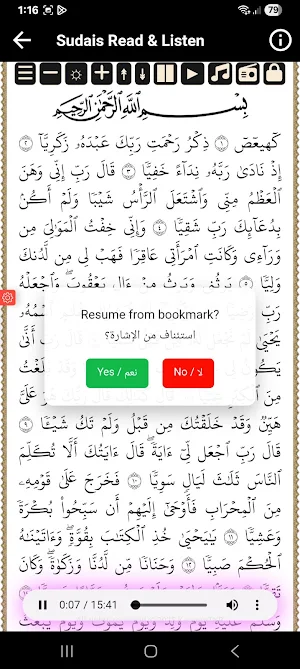 1:16
79
Sudais Read & Listen
بِسْمِ اللَّهِ الرَّحْمَٰنِ الرَّحِيمِ
كهيعص ١ ذِكْرُ رَحْمَتِ رَبِّكَ عَبْدَهُ زَكَرِيَّا ٢
إِذْ نَادَىٰ رَبَّهُ نِدَاءً خَفِيًّا ٣ قَالَ رَبِّ إِنِّي وَهَنَ
الْعَظْمُ مِنِّي وَاشْتَعَلَ الرَّأْسُ شَيْبًا وَلَمْ أَكُنْ
بِدُعَائِكَ رَبِّ شَقِيًّا ٤ وَإِنِّي خِفْتُ الْمَوَالِيَ مِنْ
وَرَاءِي وَكَانَتِ امْرَأَتِي عَاقِرًا فَهَبْ لِي مِنْ لَدُنْكَ
وَلِيًّا ٥ يَرِثُنِي وَيَرِثُ مِنْ آلِ يَعْقُوبَ وَاجْعَلْهُ
رَبِّ
Resume from bookmark?
استئناف من الإشارة؟
Yes / نعم
No / لا
هَيِّنٌ وَقَدْ خَلَقْتُكَ مِنْ قَبْلُ وَلَمْ تَكُ شَيْئًا ٩
قَالَ رَبِّ اجْعَلْ لِي آيَةً قَالَ آيَتُكَ أَلَّا تُكَلِّمَ
النَّاسَ ثَلَاثَ لَيَالٍ سَوِيًّا ١٠ فَخَرَجَ عَلَىٰ قَوْمِهِ
مِنَ الْمِحْرَابِ فَأَوْحَىٰ إِلَيْهِمْ أَنْ سَبِّحُوا بُكْرَةً
وَعَشِيًّا ١١ يَا يَحْيَىٰ خُذِ الْكِتَابَ بِقُوَّةٍ وَآتَيْنَاهُ
الْحُكْمَ صَبِيًّا ١٢ وَحَنَانًا مِنْ لَدُنَّا وَزَكَاةً وَكَانَ
0:07 / 15:41